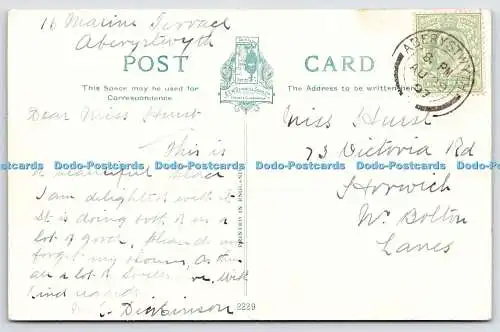 16 Marine Terrace
Aberystwyth
POST CARD
This Space may be used for
Correspondence.
The Address to be written here
ABERYSTWYTH
8 PM
AU
07
Dear Miss Hurst
This is
a beautiful place
I am delighted with it
It is doing both of us a
lot of good, Please do
forget my flowers, as there
are a lot of with
kind regards
Dickinson
Miss Hurst
73 Victoria Rd
Horwich
Nr Bolton
Lancs
PRINTED IN ENGLAND
2229
Dodo-Postcards Dodo-Postcards Dodo-Postcards Dodo-Postcards Dodo-Postcards